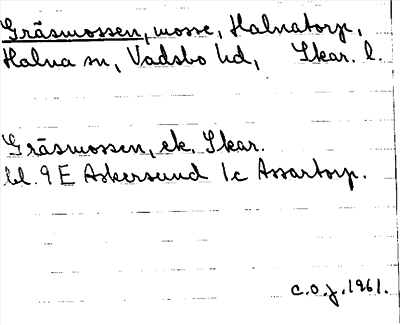 Gräsmossen, mosse, Halnatorp,
Halna sn, Vadsbo hd, Skar. l.
Gräsmossen, ek. Skar.
bl. 9 E Askersund 1c Assartorp.
c.o.j. 1961.